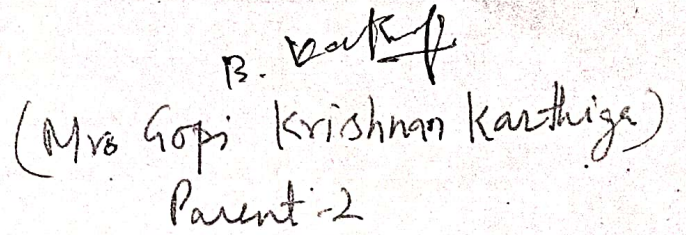 B.
(Mrs Gopi Krishnan Karthiga)
Parent-2